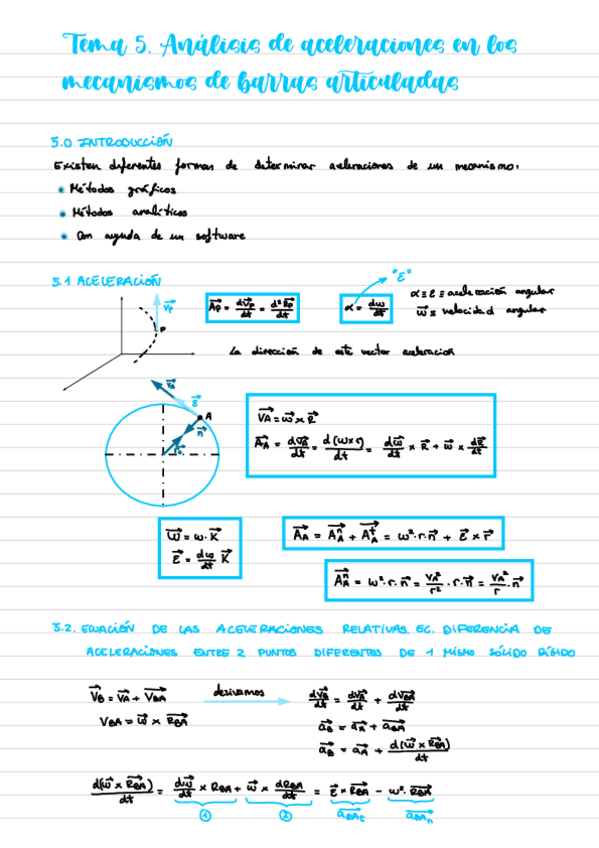 Tema 5. Análisis de aceleraciones en los
mecanismos de barras articuladas
5.0 INTRODUCCIÓN
Existen diferentes formas de determinar aceleraciones de un mecanismo:
• Métodos gráficos
• Métodos analíticos
• Con ayuda de un software
5.1 ACELERACIÓN
"ε"
V⃗p
P
A⃗p = dV⃗p/dt = d²R⃗p/dt²
α = dω/dt
α ≡ ε ≡ aceleración angular
ω⃗ ≡ velocidad angular
La dirección de este vector aceleración
V⃗A
ε⃗
A
n⃗
V⃗A = ω⃗ x R⃗
A⃗A = dV⃗A/dt = d(ω x r)/dt = dω⃗/dt x R⃗ + ω⃗ x dR⃗/dt
ω⃗ = ω · K⃗
ε⃗ = dω/dt K⃗
A⃗A = A⃗ⁿA + A⃗ᵗA = ω² · r · n⃗ + ε⃗ x r⃗
A⃗ⁿA = ω² · r · n⃗ = VA²/r² · r · n⃗ = VA²/r · n⃗
5.2. ECUACIÓN DE LAS ACELERACIONES RELATIVAS. EC. DIFERENCIA DE
ACELERACIONES ENTRE 2 PUNTOS DIFERENTES DE 1 MISMO SÓLIDO RÍGIDO
V⃗B = V⃗A + V⃗BA
derivamos
dV⃗B/dt = dV⃗A/dt + dV⃗BA/dt
VBA = ω⃗ x R⃗BA
a⃗B = a⃗A + a⃗BA
a⃗B = a⃗A + d(ω⃗ x R⃗BA)/dt
d(ω⃗ x R⃗BA)/dt = dω⃗/dt x RBA + ω⃗ x dRBA/dt = ε⃗ x R⃗BA - ω² · R⃗BA
① ② a⃗BAt a⃗BAn